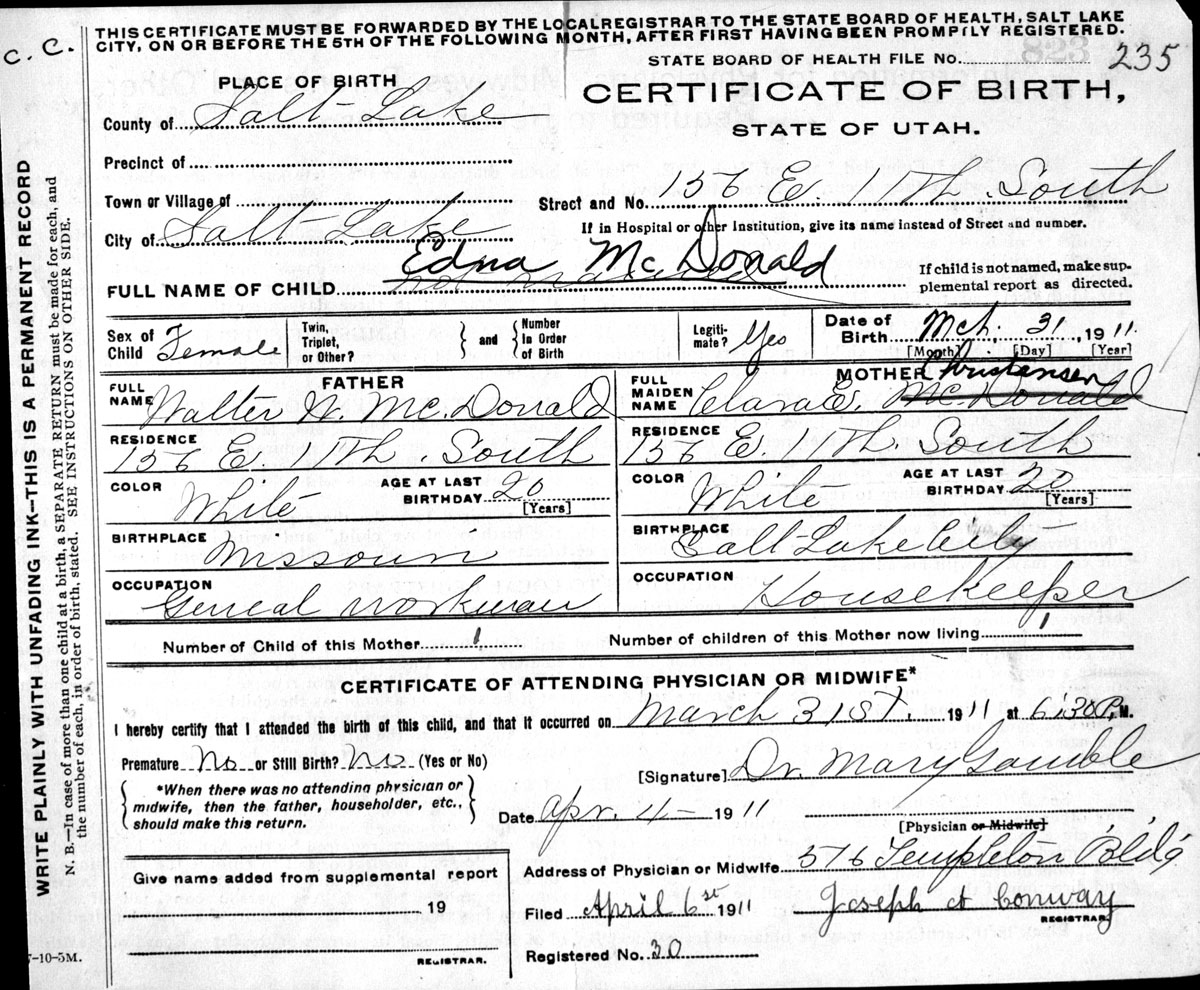 C. C.
THIS CERTIFICATE MUST BE FORWARDED BY THE LOCAL REGISTRAR TO THE STATE BOARD OF HEALTH, SALT LAKE
CITY, ON OR BEFORE THE 5TH OF THE FOLLOWING MONTH, AFTER FIRST HAVING BEEN PROMPTLY REGISTERED.
STATE BOARD OF HEALTH FILE No. 235
PLACE OF BIRTH
CERTIFICATE OF BIRTH,
County of Salt Lake
STATE OF UTAH.
Precinct of
Town or Village of
Street and No. 156 E. 11th. South
City of Salt Lake
If in Hospital or other Institution, give its name instead of Street and number.
Edna McDonald
FULL NAME OF CHILD not named
If child is not named, make sup-
plemental report as directed.
Sex of Child Female
Twin, Triplet, or Other?
and
Number In Order of Birth
Legiti-mate? Yes
Date of Birth Mch. 31, 1911.
[Month] [Day] [Year]
FATHER
MOTHER
FULL NAME Walter W. McDonald
FULL MAIDEN NAME Clara E. McDonald Christensen
RESIDENCE 156 E. 11Th. South
RESIDENCE 156 E. 11th South
COLOR White
AGE AT LAST BIRTHDAY 20 [Years]
COLOR White
AGE AT LAST BIRTHDAY 20 [Years]
BIRTHPLACE Missouri
BIRTHPLACE Salt Lake City
OCCUPATION Geneal workman
OCCUPATION Housekeeper
Number of Child of this Mother 1
Number of children of this Mother now living 1
CERTIFICATE OF ATTENDING PHYSICIAN OR MIDWIFE*
I hereby certify that I attended the birth of this child, and that it occurred on March 31ST. 1911 at 6:30 P. M.
Premature No or Still Birth? No (Yes or No)
[Signature] Dr. Mary Gamble
*When there was no attending physician or
midwife, then the father, householder, etc.,
should make this return.
Date Apr. 4- 1911
[Physician or Midwife]
Give name added from supplemental report
19
REGISTRAR.
Address of Physician or Midwife 576 Templeton Bldg
Filed April 6st 1911
Joseph H Conway
REGISTRAR.
Registered No. 30
7-10-5M.
WRITE PLAINLY WITH UNFADING INK—THIS IS A PERMANENT RECORD
N. B.—In case of more than one child at a birth, a SEPARATE RETURN must be made for each, and
the number of each, in order of birth, stated. SEE INSTRUCTIONS ON OTHER SIDE.